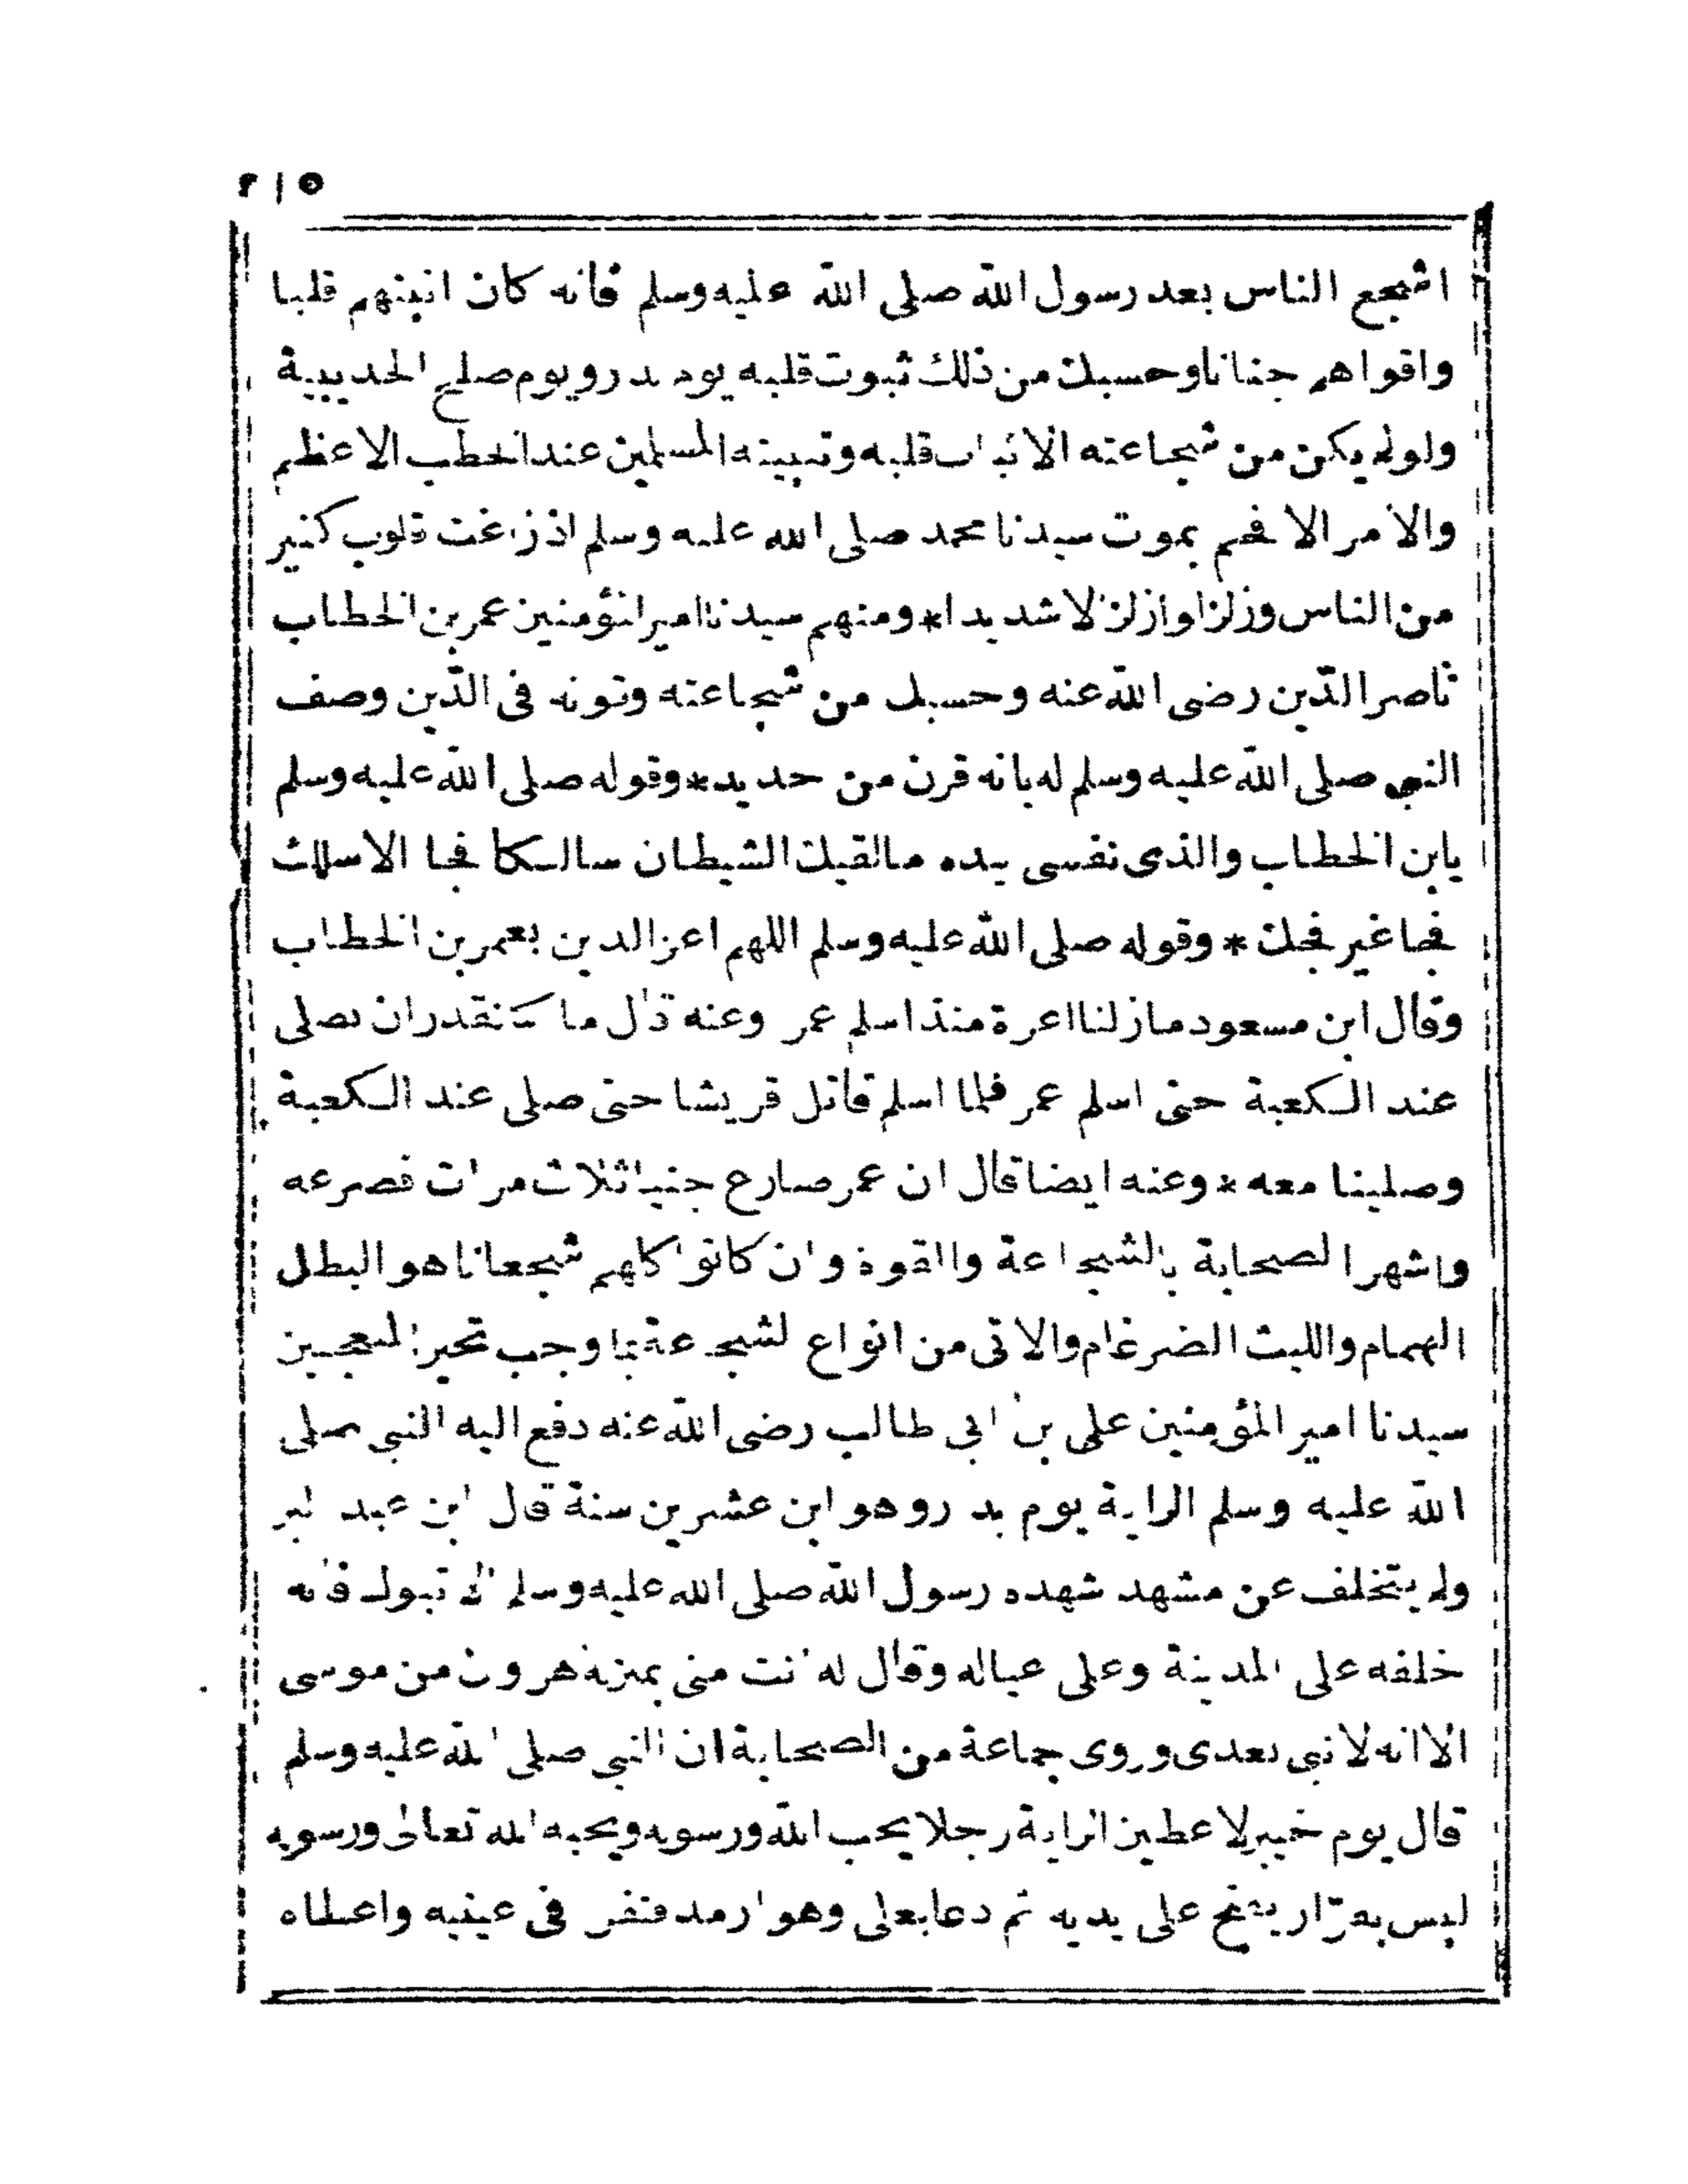 ٢١٥
اشجع الناس بعد رسول الله صلى الله عليه وسلم فانه كان اثبتهم قلبا
واقواهم جنانا وحسبك من ذلك ثبوت قلبه يوم بدر ويوم صلح الحديبية
ولو لم يكن من شجاعته الا ثبات قلبه وتثبيته المسلمين عند الخطب الاعظم
والامر الافخم بموت سيدنا محمد صلى الله عليه وسلم اذ زاغت قلوب كثير
من الناس وزلزلوا زلزالا شديدا * ومنهم سيدنا امير المؤمنين عمر بن الخطاب
ناصر الدّين رضى الله عنه وحسبك من شجاعته وقوته فى الدّين وصف
النبى صلى الله عليه وسلم له بانه قرن من حديد * وقوله صلى الله عليه وسلم
يابن الخطاب والذى نفسى بيده مالقيك الشيطان سالكا فجا الا سلك
فجا غير فجك * وقوله صلى الله عليه وسلم اللهم اعز الدين بعمر بن الخطاب
وقال ابن مسعود مازلنا اعزة منذ اسلم عمر وعنه قال ما كنا نقدر ان نصلى
عند الكعبة حتى اسلم عمر فلما اسلم قاتل قريشا حتى صلى عند الكعبة
وصلينا معه * وعنه ايضا قال ان عمر صارع جنيا ثلاث مرات فصرعه
واشهر الصحابة بالشجاعة والقوة وان كانوا كلهم شجعانا هو البطل
الهمام والليث الضرغام والاتى من انواع الشجاعة بما وجب تحير المتعجبين
سيدنا امير المؤمنين على بن ابى طالب رضى الله عنه دفع اليه النبى صلى
الله عليه وسلم الراية يوم بدر وهو ابن عشرين سنة قال ابن عبد البر
ولم يتخلف عن مشهد شهده رسول الله صلى الله عليه وسلم الا تبوك فانه
خلفه على المدينة وعلى عياله وقال له انت منى بمنزلة هرون من موسى
الا انه لا نبى بعدى وروى جماعة من الصحابة ان النبى صلى الله عليه وسلم
قال يوم خيبر لاعطين الراية رجلا يحب الله ورسوله ويحبه الله تعالى ورسوله
ليس بفرّار يفتح على يديه ثم دعا بعلى وهو ارمد فتفل فى عينيه واعطاه